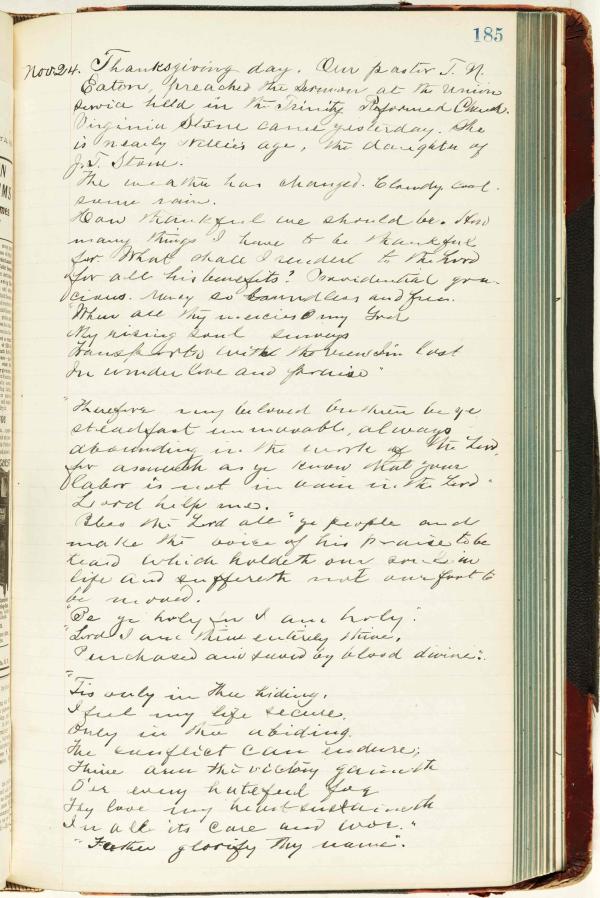 185
Nov. 24. Thanksgiving day. Our pastor T. N.
Eaton, preached the sermon at the Union
service held in the Trinity Reformed Church.
Virginia Stone came yesterday. She
is nearly Nellie's age, the daughter of
J. T. Stone.
The weather has changed. Cloudy, cool.
some rain.
How thankful we should be. How
many things I have to be thankful
for. What shall I render to the Lord
for all his benefits? Providential gra-
cious. Mercy so boundless and free.
"When all thy mercies O my God
My rising soul surveys
Transported with the view I'm lost
In wonder love and praise"
"Therefore my beloved brethren be ye
steadfast unmovable, always
abounding in the work of the Lord,
for asmuch as ye know that your
labor is not in vain in the Lord"
Lord help me.
Bless the Lord all "ye people and
make the voice of his praise to be
heard which holdeth our soul in
life and suffereth not our foot to
be moved.
"Be ye holy for I am holy".
"Lord I am thine entirely thine,
Purchased and saved by blood divine".
"Tis only in Thee hiding.
I feel my life secure,
Only in thee abiding
The conflict can endure;
Thine arm the victory gaineth
O'er every hateful foe
Thy love my heart sustaineth
In all its care and woe."
"Father glorify thy name".